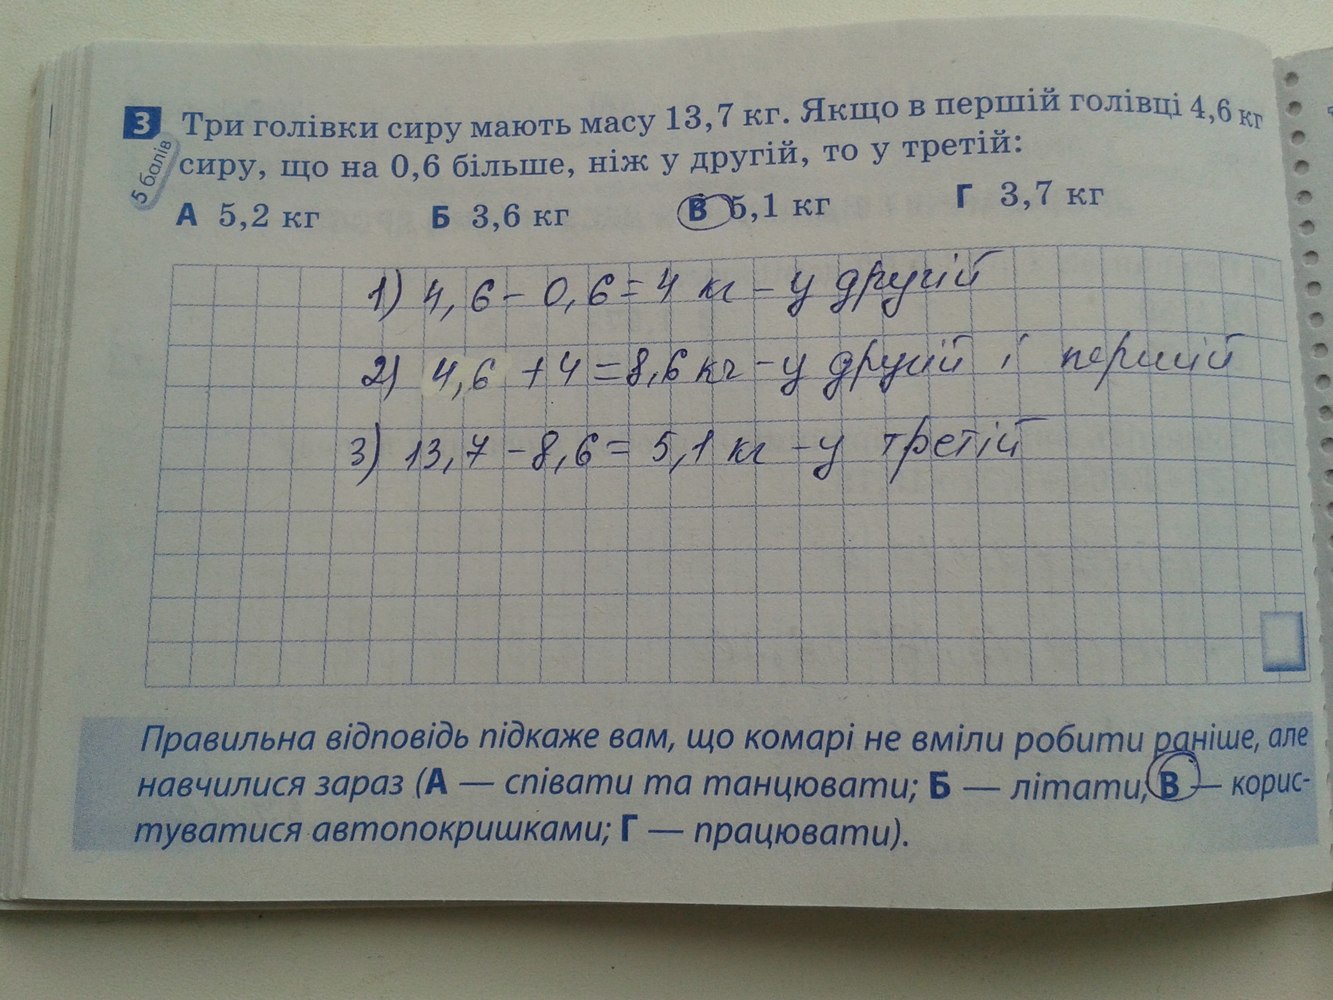 3 Три голівки сиру мають масу 13,7 кг. Якщо в першій голівці 4,6 кг
5 балів
сиру, що на 0,6 більше, ніж у другій, то у третій:
А 5,2 кг Б 3,6 кг В 5,1 кг Г 3,7 кг
1) 4,6 - 0,6 = 4 кг - у другій
2) 4,6 + 4 = 8,6 кг - у другій і першій
3) 13,7 - 8,6 = 5,1 кг - у третій
Правильна відповідь підкаже вам, що комарі не вміли робити раніше, але
навчилися зараз (А — співати та танцювати; Б — літати; В — корис-
туватися автопокришками; Г — працювати).